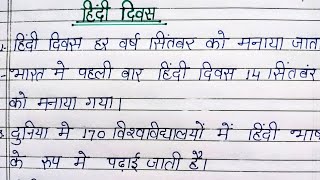 हिंदी दिवस
हिंदी दिवस हर वर्ष सितंबर को मनाया जाता
भारत मे पहली बार हिंदी दिवस 14 सितंबर
को मनाया गया।
दुनिया मे 170 विश्वविद्यालयों में हिंदी भाष
के रुप मे पढ़ाई जाती है।